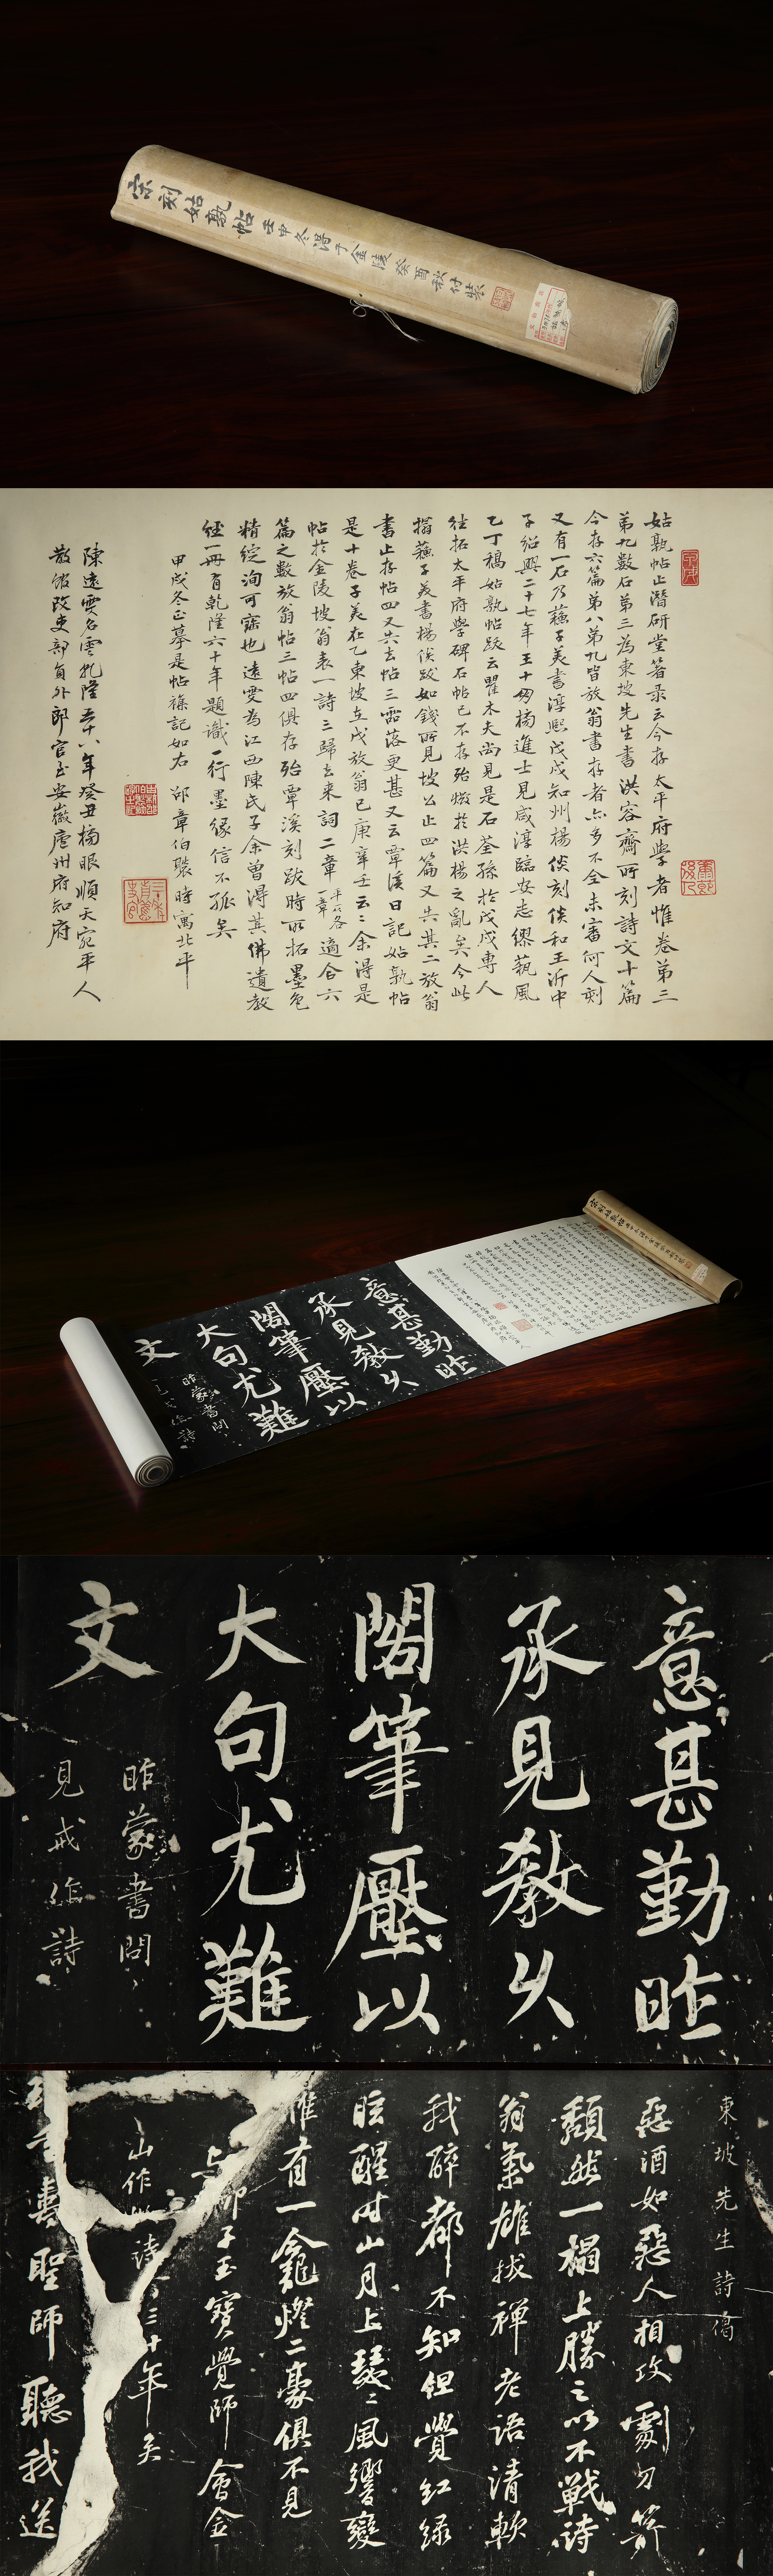 宋刻姑孰帖 壬申冬得于金陵 癸酉秋付裝
姑孰帖止潛研堂著录云今存太平府學者惟卷第三
第九數石第三為東坡先生書洪容齋所刻詩文十篇
今存六篇第八第九皆放翁書存者亦多不全未審何人刻
又有一石乃蘇子美書淳熙戊戌知州楊倓刻倓和王沂中
子紹興二十七年王十朋榜進士見咸淳臨安志繆藝風
乙丁稿姑孰帖跋云瞿木夫尚見是石荃孫於戊戌專人
往拓太平府學碑石帖已不存殆燬於洪楊之亂矣今此
搨蘇子美書楊倓跋如錢所見坡公止四篇又失其二放翁
書止存帖四又失去帖三零落更甚又云覃溪日記姑孰帖
是十卷子美在乙東坡在戊放翁已庚辛壬云云余得是
帖於金陵坡翁表一詩三歸去来詞二章
適合六
篇之數放翁帖三帖四俱存殆覃溪刻跋時所拓墨色
精綻洵可寶也遠雯為江西陳氏子余曾得其佛遺教
經一冊有乾隆六十年題識一行墨緣信不孤矣
甲戌冬正摹是帖祿記如右 邵章伯褧時寓北平
陳遠雯名雲乾隆五十八年癸丑榜眼順天宛平人
散館改吏部員外郎官至安徽廬州府知府
意甚勤昨
承見教久
閣筆壓以
大句尤難
文
昨蒙書問
見戒作詩
意甚勤昨
承見教久
閣筆壓以
大句尤難
文
昨蒙書問
見戒作詩
東坡先生詩偈
惡酒如惡人相攻劇刀箭
頹然一榻上勝之以不戰詩
翁氣雄拔禪老語清軟
我醉都不知但覺紅綠
眩醒時山月上瑟瑟風響變
惟有一龕燈二豪俱不見
与柳子玉寶覺師會金
山作此詩今三十年矣
聖師聽我送